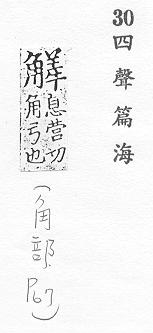 30四聲篇海
觧息营切
角弓也
(角部.P67)